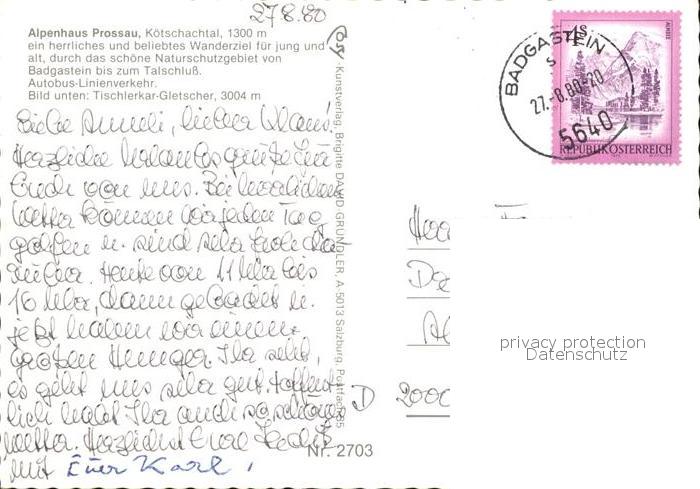 27.8.80
Alpenhaus Prossau, Kötschachtal, 1300 m
ein herrliches und beliebtes Wanderziel für jung und
alt, durch das schöne Naturschutzgebiet von
Badgastein bis zum Talschluß.
Autobus-Linienverkehr.
Bild unten: Tischlerkar-Gletscher, 3004 m
Liebe Annneli, lieber Klaus!
Herzliche Urlaubsgrüße für
Euch von uns. Bei herrlichem
Wetter können wir jeden Tag
golfen u. sind sehr froh da-
rüber. Heute von 11 Uhr bis
16 Uhr, dann gebadet u.
jetzt haben wir einen
großen Hunger. Ihr seht,
es geht uns sehr gut. Hoffent-
lich habt Ihr auch so schönes
Wetter. Herzlichst Eure
mit Euer Karl
Kunstverlag, Brigitte DAVID GRÜNDLER, A-5013 Salzburg, Postfach 95
Nr. 2703
BADGASTEIN
27.-8.80-20
5640
4 S
REPUBLIK ÖSTERREICH
D 2000
privacy protection
Datenschutz